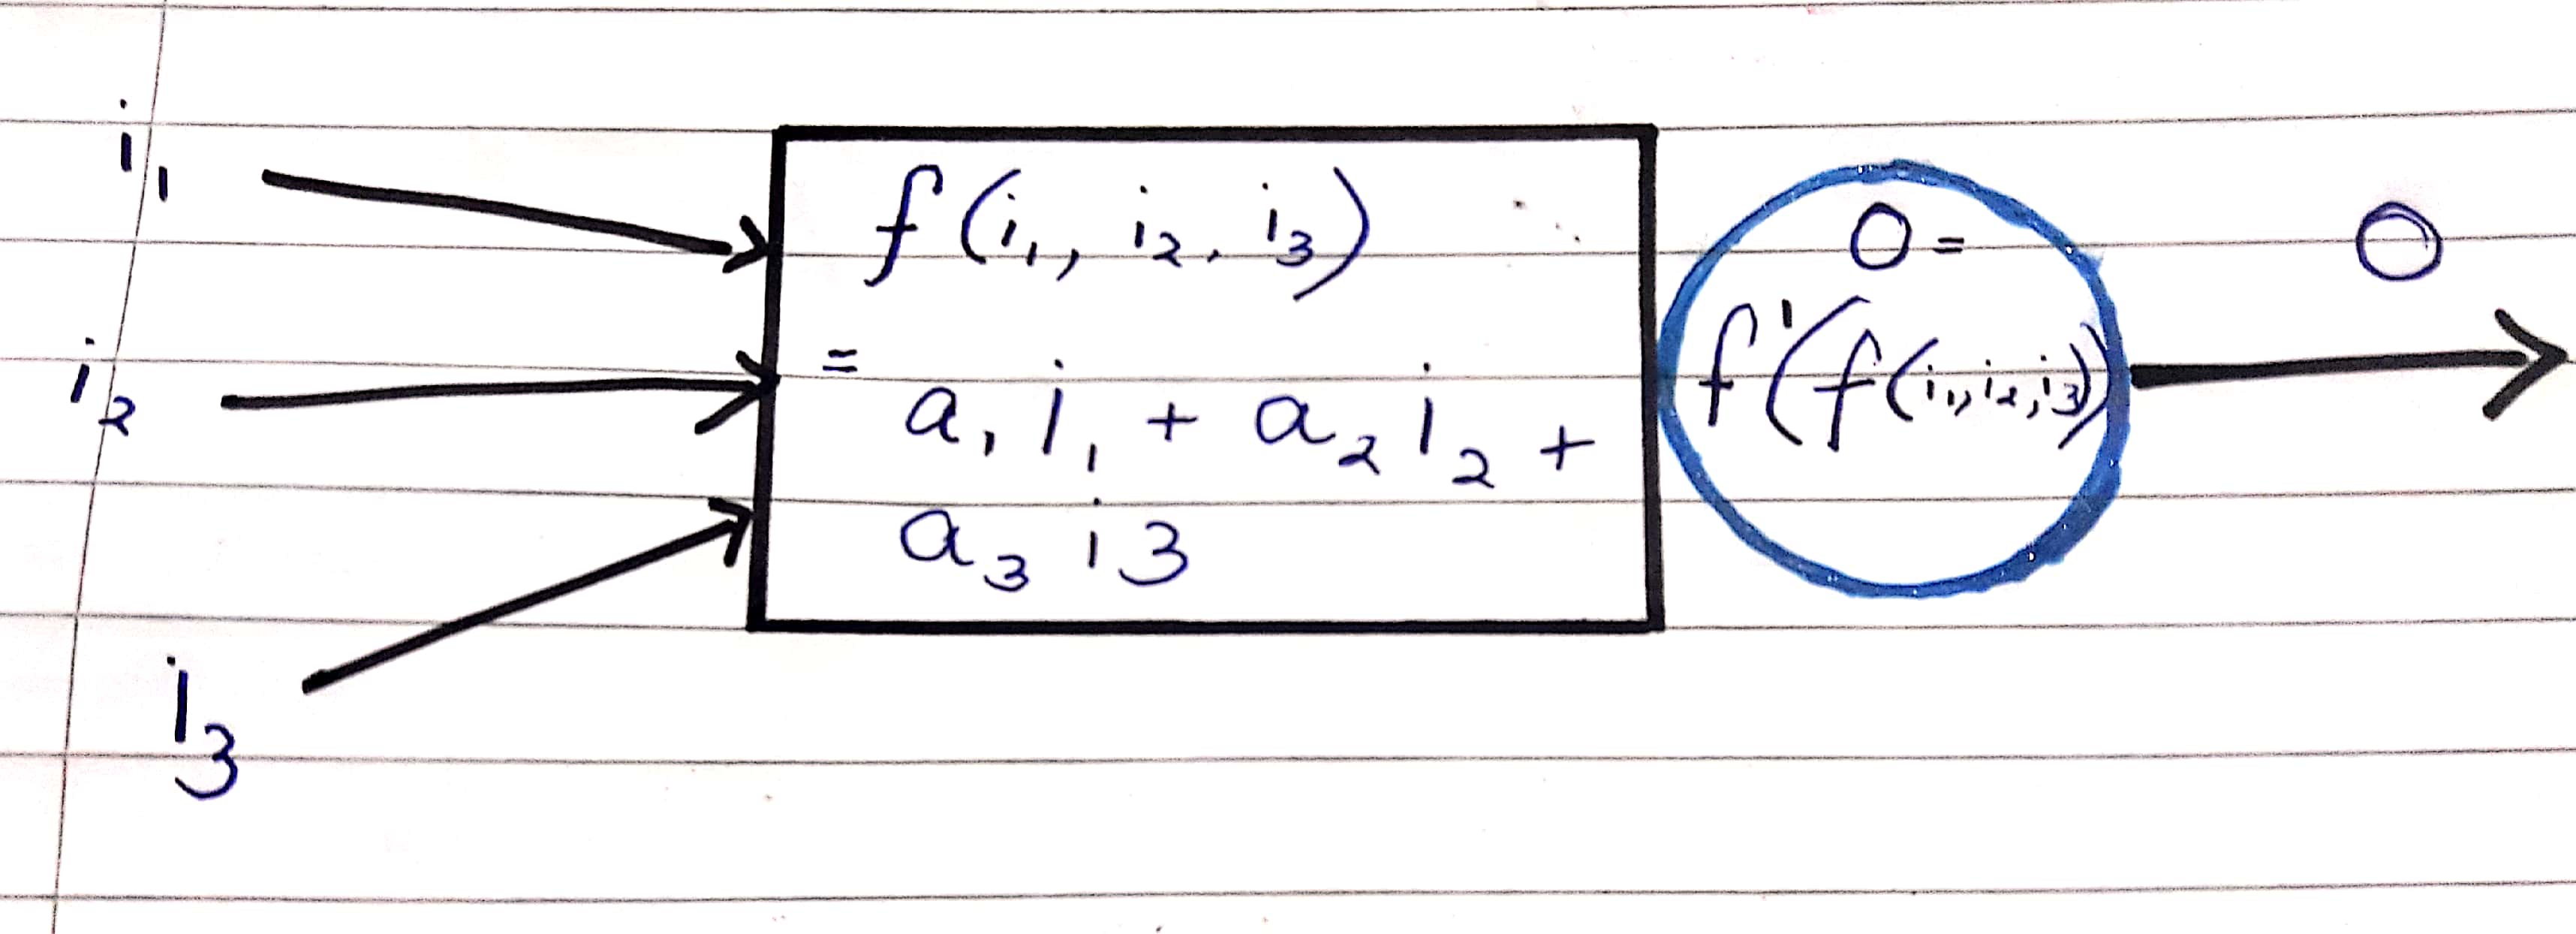 i₁
i₂
i₃
f(i₁, i₂, i₃)
=
a₁ i₁ + a₂ i₂ +
a₃ i3
O =
f'(f(i₁, i₂, i₃)
O